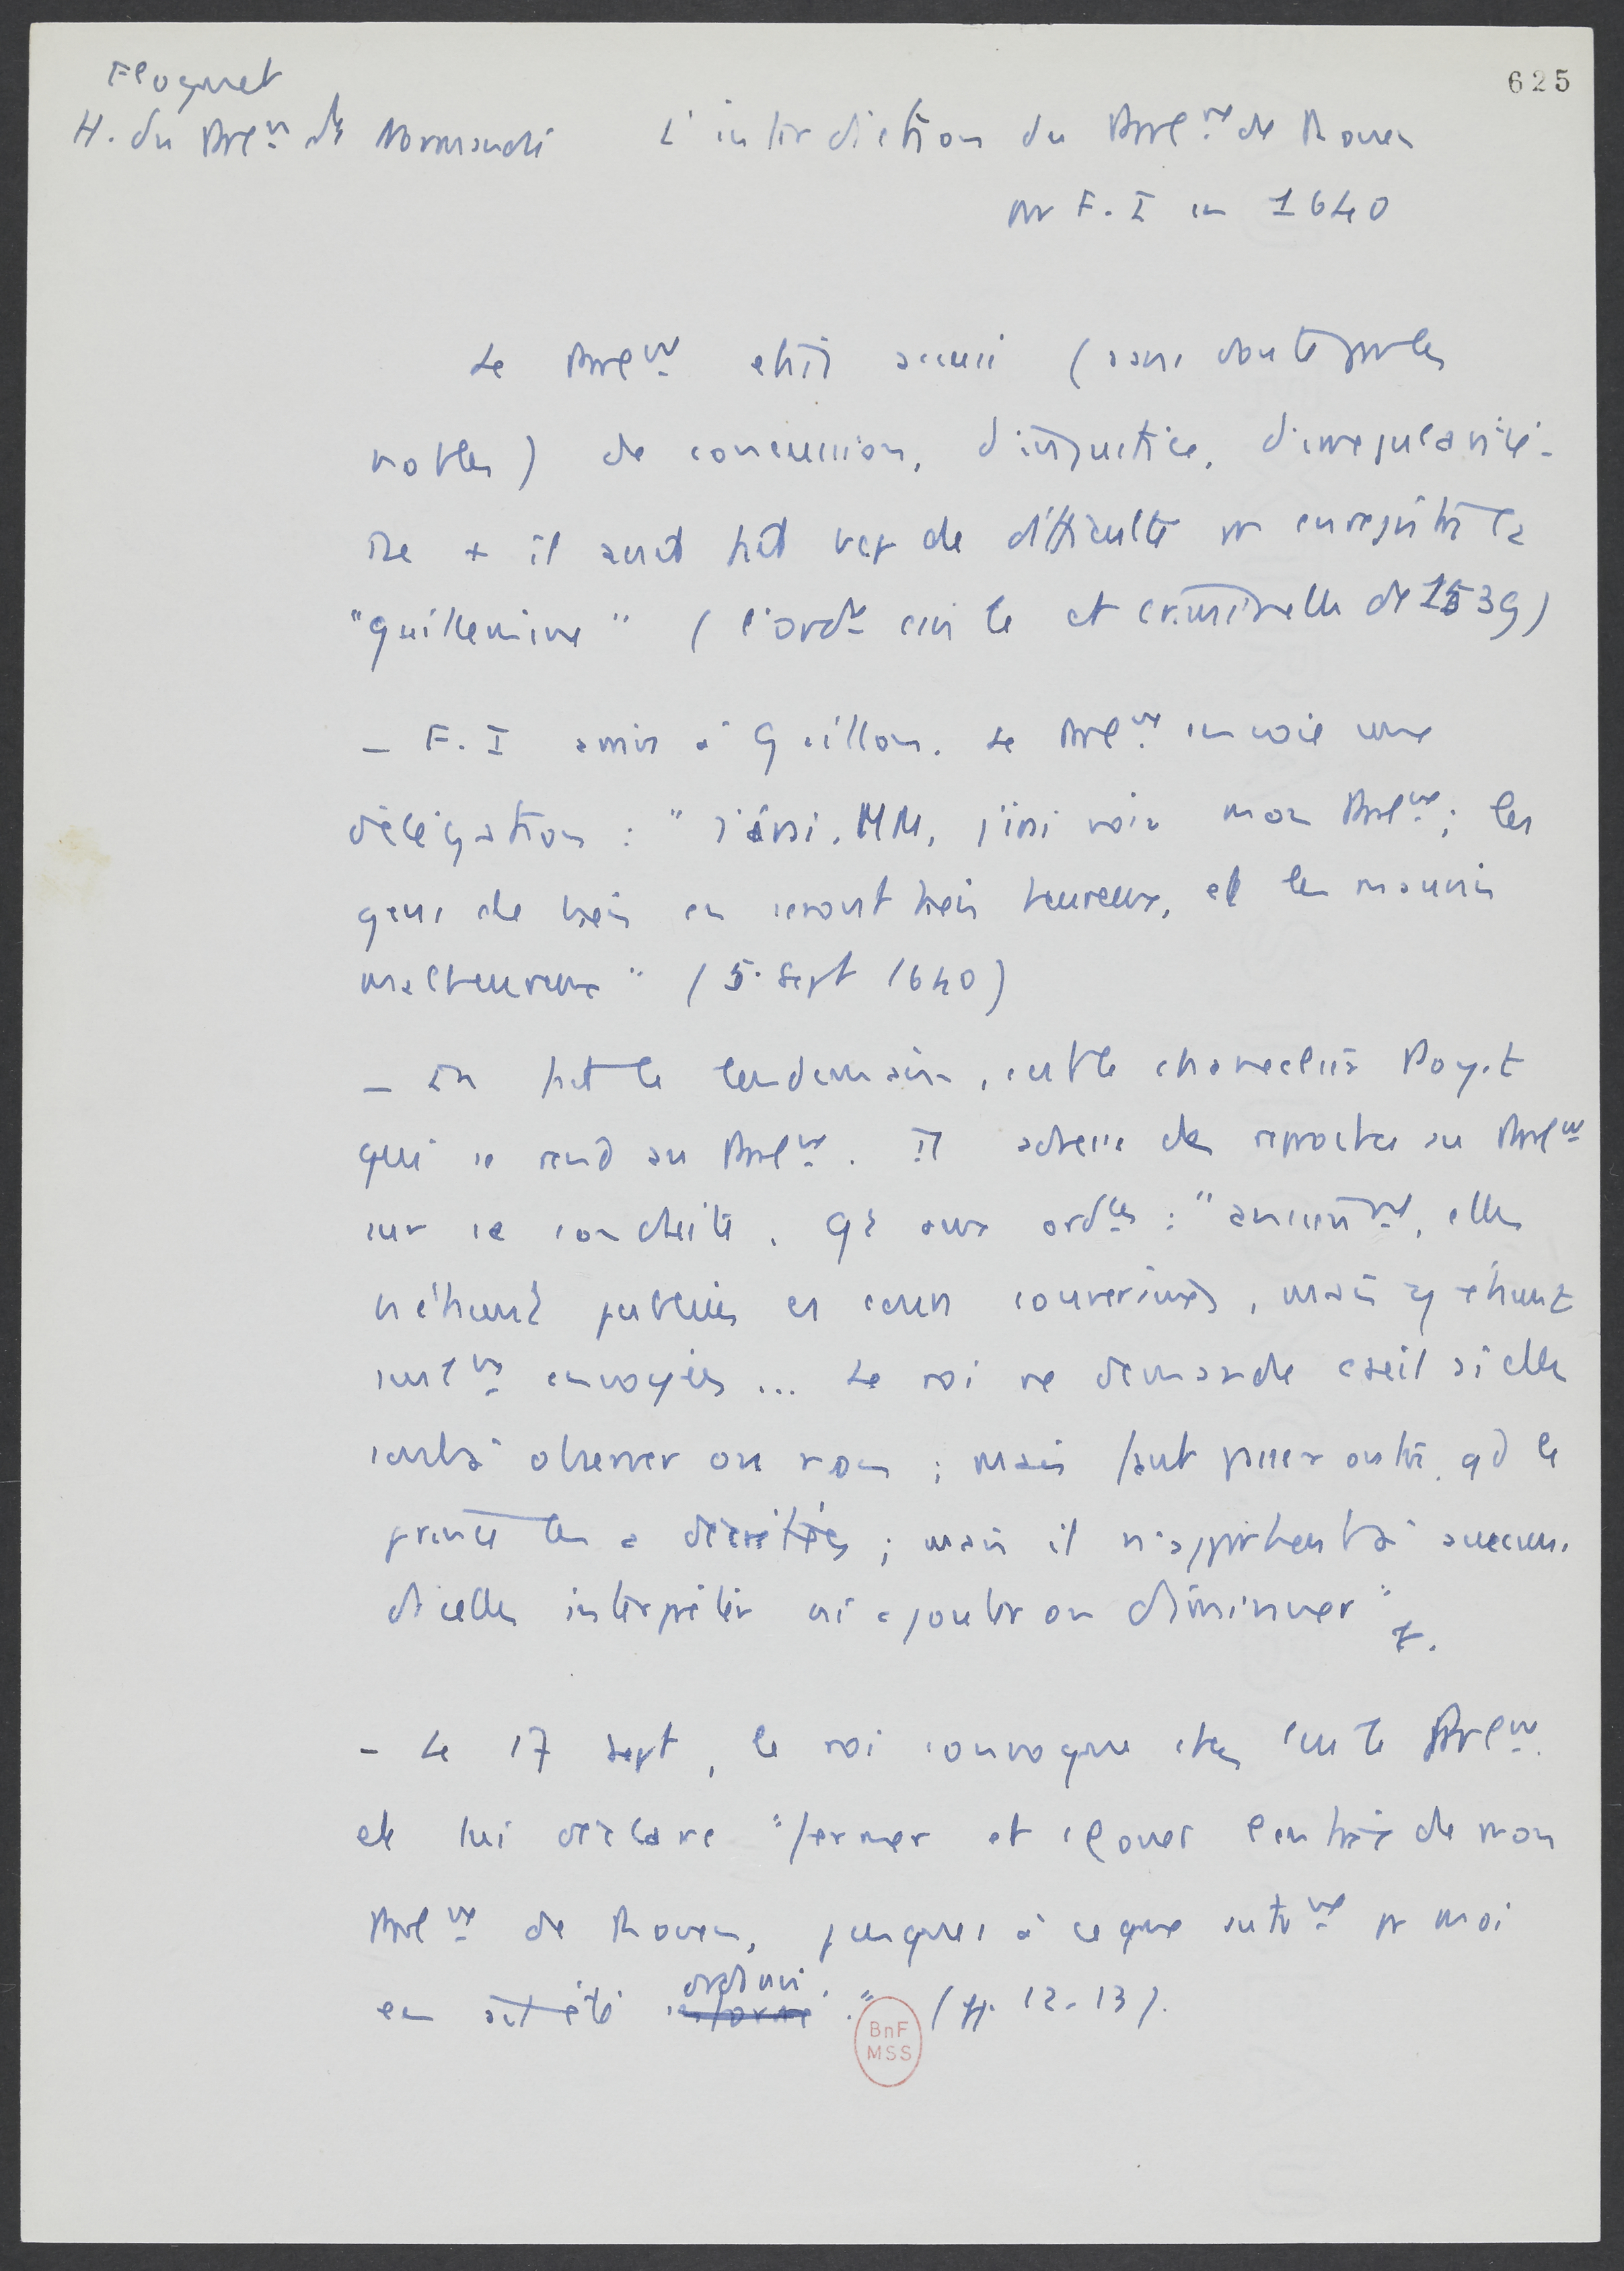 625
Floquet
H. du Parlnt de Normandie
L'interdiction du Parlnt de Rouen
par F. I en 1640
Le Parlnt était accusé (sans doute par les
nobles) de concussion, d'injustice, d'irrégularité.
De + il avait fait bcp de difficulté pr enregistrer la
"guillemine" (l'ordce civile et criminelle de 1539)
— F. I arrive à Gaillon. Le Parlnt envoie une
délégation : "J'irai, MM, j'irai voir mon Parlnt ; les
gens de bien en seront bien heureux, et les mauvais
malheureux" (5 sept 1640)
— En fait le lendemain, c'est le chancelier Poyet
qui se rend au Parlnt. Il adresse des reproches au Parlnt
sur sa conduite. Qt aux ordces : "anciennt, elles
n'étaient publiées es cours souveraines, mais y étaient
seulnt envoyées... Le roi ne demande conseil si elles
sont à observer ou non ; mais faut passer outre, qd le
prince les a décrétées ; mais il n'appartient à aucuns
d'icelles interpréter ni ajouter ou diminuer".
— Le 17 sept, le roi convoque chez lui le Parlnt
et lui déclare "fermer et clouer l'entrée de mon
Parlnt de Rouen, jusques à ce que autrnt pr moi
en ait été informé ordonné." (pp. 12-13).
BnF
MSS